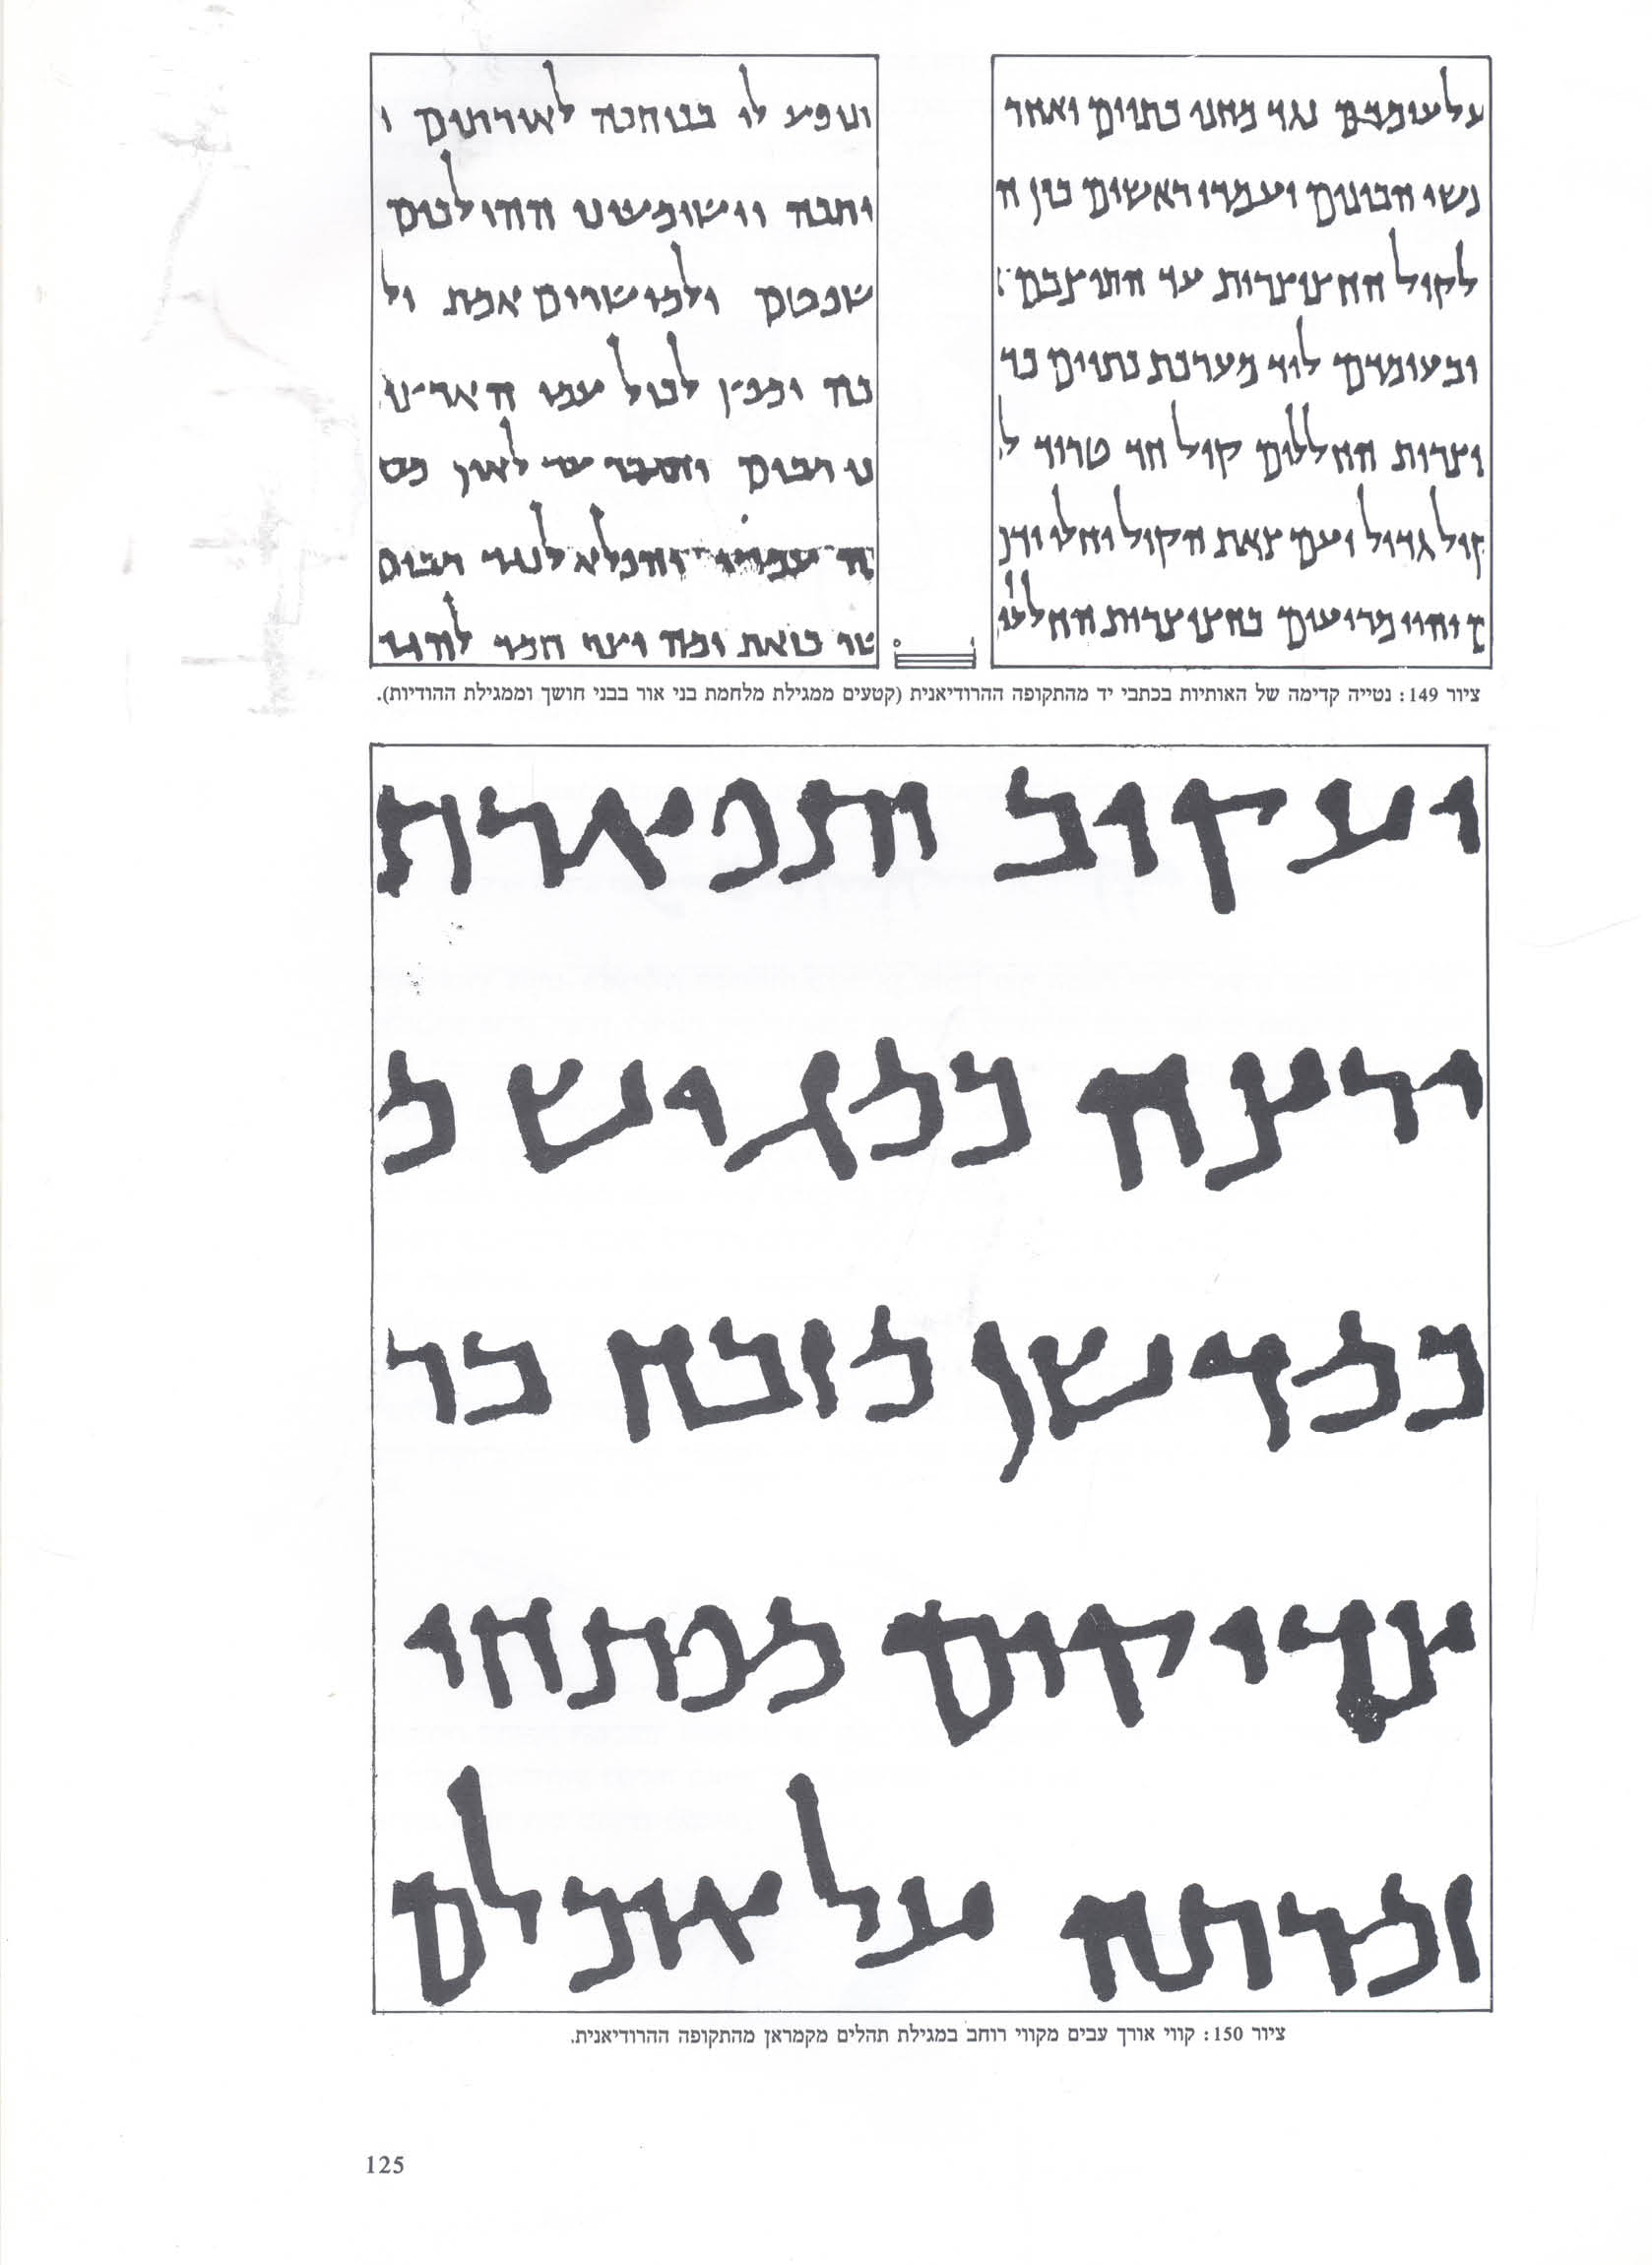 על עומדם נגד מחני כתיים ואחר
נשי הבינים ועמדו ראשים בין ה
לקול החצוצרות עד התיצבם
ובעומדם ליד מערכת כתיים כד
וצרות החללים קול חד טרוד ל
קול גדול ועם צאת הקול יחלו ידן
ך והיו מריעים בחצוצרות החללי
ותופע לי בכוחכה לאורתום ו
יתכה וישומעוני ההולכים
שפטם ולמישרים אמת ול
כה ומפץ לכול עמי הארצו
ני רבים ותגבר עד לאין מס
ה עמדי והפלא לנגד רבים
שר כזאת ומה יצר חמר להגד
ציור 149: נטייה קדימה של האותיות בכתבי יד מהתקופה ההרודיאנית (קטעים ממגילת מלחמת בני אור בבני חושך וממגילת ההודיות).
יעקוב ותפארת
ירצה כמגיש מ
כמדשן מזבח בר
צדיקים מפתחי
זמרתה על אוכלם
ציור 150: קווי אורך עבים מקווי רוחב במגילת תהלים מקמראן מהתקופה ההרודיאנית.
125